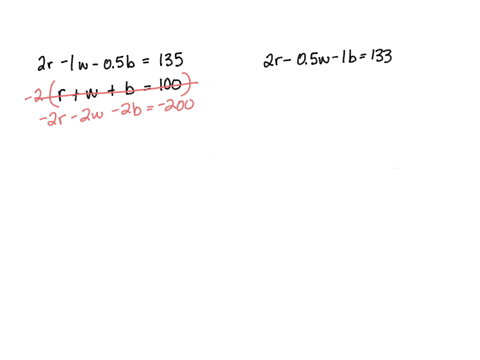 2r - 1w - 0.5b = 135
-2(r + w + b = 100)
-2r - 2w - 2b = -200
2r - 0.5w - 1b = 133